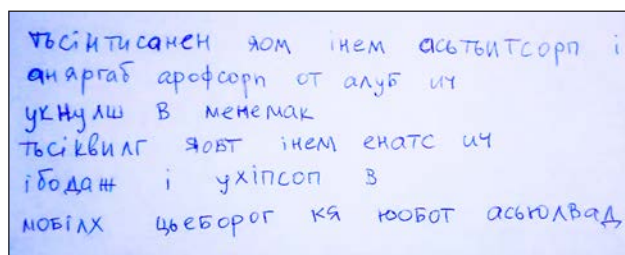 тьсінтисанен яом інем асьтьитсорп і
аняргаб арофсорп от алуб ич
укнулш в менемак
тьсіквилг яовт інем енатс ич
ібодаж і ухіпсоп в
мобілх цьеборог кя юовот асьюлвад